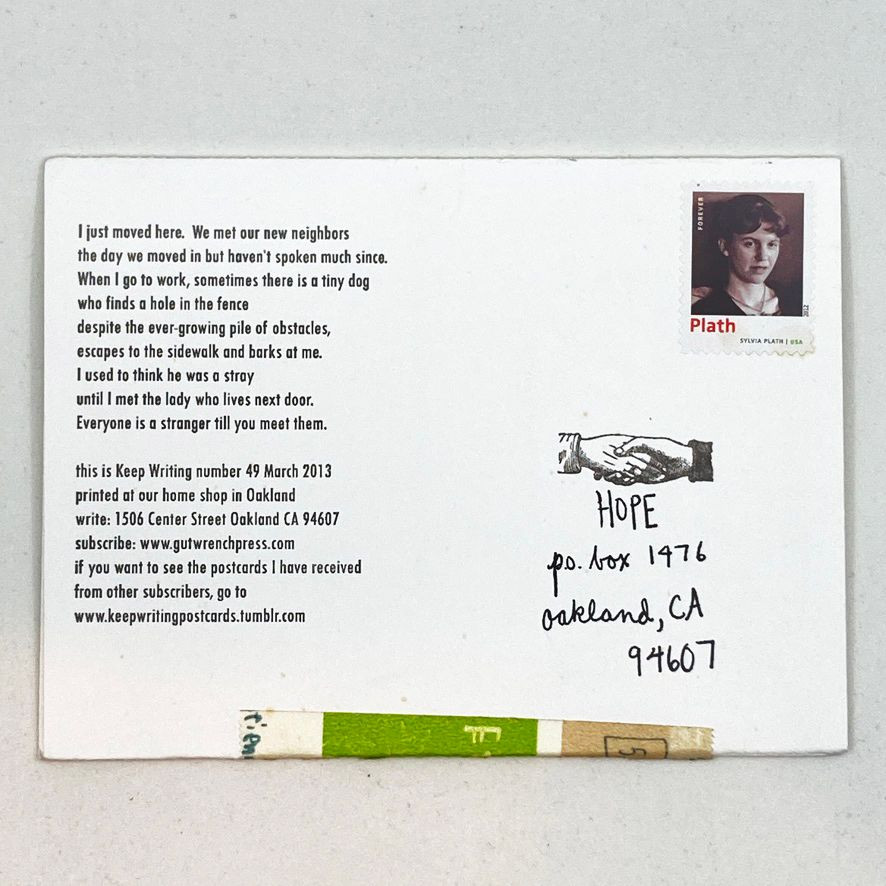 I just moved here. We met our new neighbors
the day we moved in but haven't spoken much since.
When I go to work, sometimes there is a tiny dog
who finds a hole in the fence
despite the ever-growing pile of obstacles,
escapes to the sidewalk and barks at me.
I used to think he was a stray
until I met the lady who lives next door.
Everyone is a stranger till you meet them.
this is Keep Writing number 49 March 2013
printed at our home shop in Oakland
write: 1506 Center Street Oakland CA 94607
subscribe: www.gutwrenchpress.com
if you want to see the postcards I have received
from other subscribers, go to
www.keepwritingpostcards.tumblr.com
FOREVER
2012
Plath
SYLVIA PLATH | USA
HOPE
p.o. box 1476
oakland, CA
94607